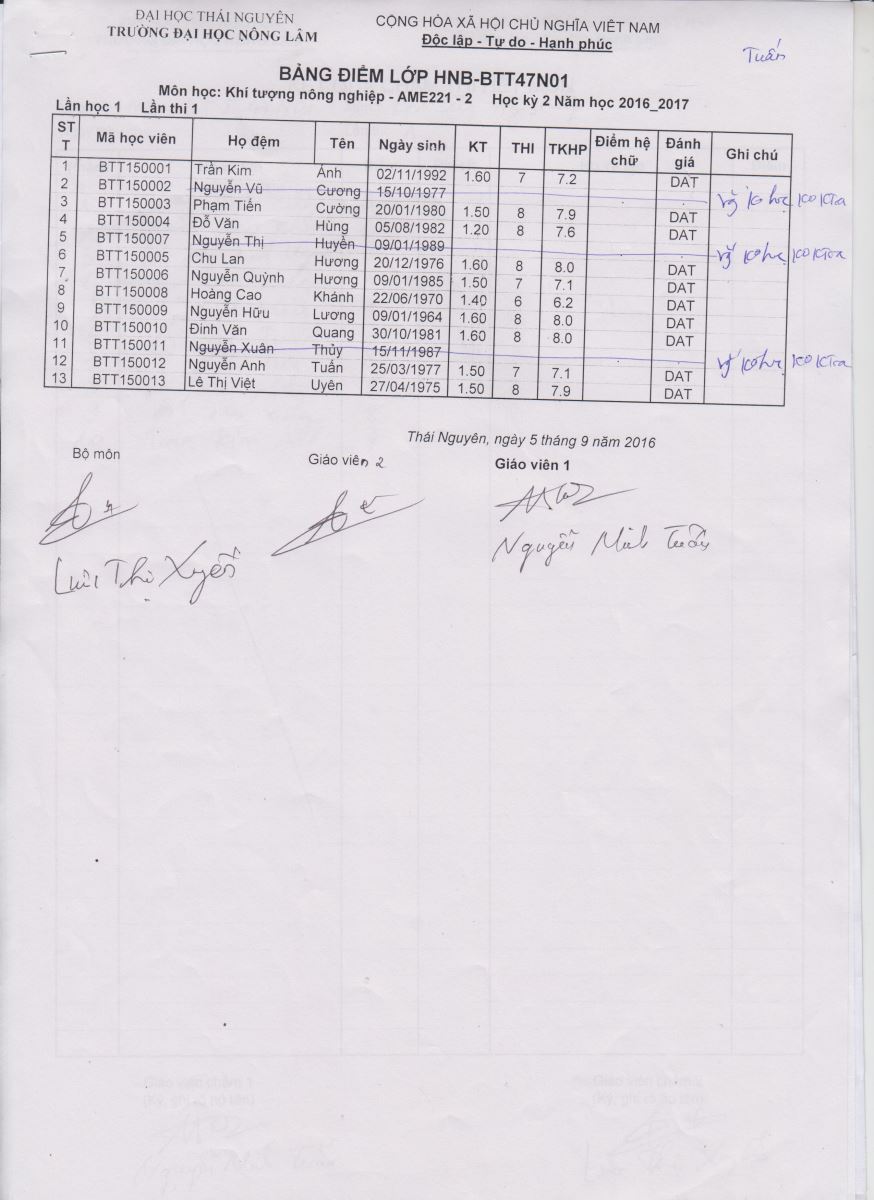 ĐẠI HỌC THÁI NGUYÊN
TRƯỜNG ĐẠI HỌC NÔNG LÂM
CỘNG HÒA XÃ HỘI CHỦ NGHĨA VIỆT NAM
Độc lập - Tự do - Hạnh phúc
Tuấn
BẢNG ĐIỂM LỚP HNB-BTT47N01
Môn học: Khí tượng nông nghiệp - AME221 - 2 Học kỳ 2 Năm học 2016_2017
Lần học 1 Lần thi 1
STT Mã học viên Họ đệm Tên Ngày sinh KT THI TKHP Điểm hệ chữ Đánh giá Ghi chú
1 BTT150001 Trần Kim Ánh 02/11/1992 1.60 7 7.2 DAT
2 BTT150002 Nguyễn Vũ Cương 15/10/1977 ko học ko Ktra
3 BTT150003 Phạm Tiến Cường 20/01/1980 1.50 8 7.9 DAT
4 BTT150004 Đỗ Văn Hùng 05/08/1982 1.20 8 7.6 DAT
5 BTT150007 Nguyễn Thị Huyền 09/01/1989 ko học ko Ktra
6 BTT150005 Chu Lan Hương 20/12/1976 1.60 8 8.0 DAT
7 BTT150006 Nguyễn Quỳnh Hương 09/01/1985 1.50 7 7.1 DAT
8 BTT150008 Hoàng Cao Khánh 22/06/1970 1.40 6 6.2 DAT
9 BTT150009 Nguyễn Hữu Lương 09/01/1964 1.60 8 8.0 DAT
10 BTT150010 Đinh Văn Quang 30/10/1981 1.60 8 8.0 DAT
11 BTT150011 Nguyễn Xuân Thủy 15/11/1987 ko học ko Ktra
12 BTT150012 Nguyễn Anh Tuấn 25/03/1977 1.50 7 7.1 DAT
13 BTT150013 Lê Thị Việt Uyên 27/04/1975 1.50 8 7.9 DAT
Thái Nguyên, ngày 5 tháng 9 năm 2016
Bộ môn Giáo viên 2 Giáo viên 1
Nguyễn Minh Tuấn
Lưu Thị Xuyến